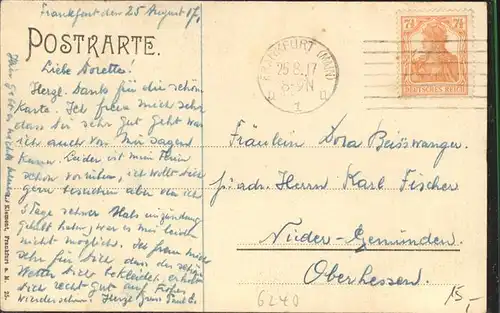 Frankfurt den 25 August 17.
POSTKARTE.
Liebe Dorette!
Herzl. Dank für die schöne
Karte. Ich freue mich sehr
dass Dir sehr gut geht was
ich auch von mir sagen
kann. Leider ist mein
schon vorüber, ich wollte Dich
gern besuchen aber da ich
3 Tage schwer Halsentzündung
gehabt habe, war es mir leider
nicht möglich. Ich freue mich
sehr für Dich dass das schöne
Wetter Dich begleitet, erhole
Dich recht gut auf Frohes
Wiedersehen. Herzl. Gruss
Klement, Frankfurt a. M.
FRANKFURT (MAIN)
25.8.17
8-9N
1
7½ 7½
DEUTSCHES REICH
Fräulein Dora Beisswanger
p. adr. Herrn Karl Fischer
Nieder-Gemünden
Oberhessen.
6240
15,-